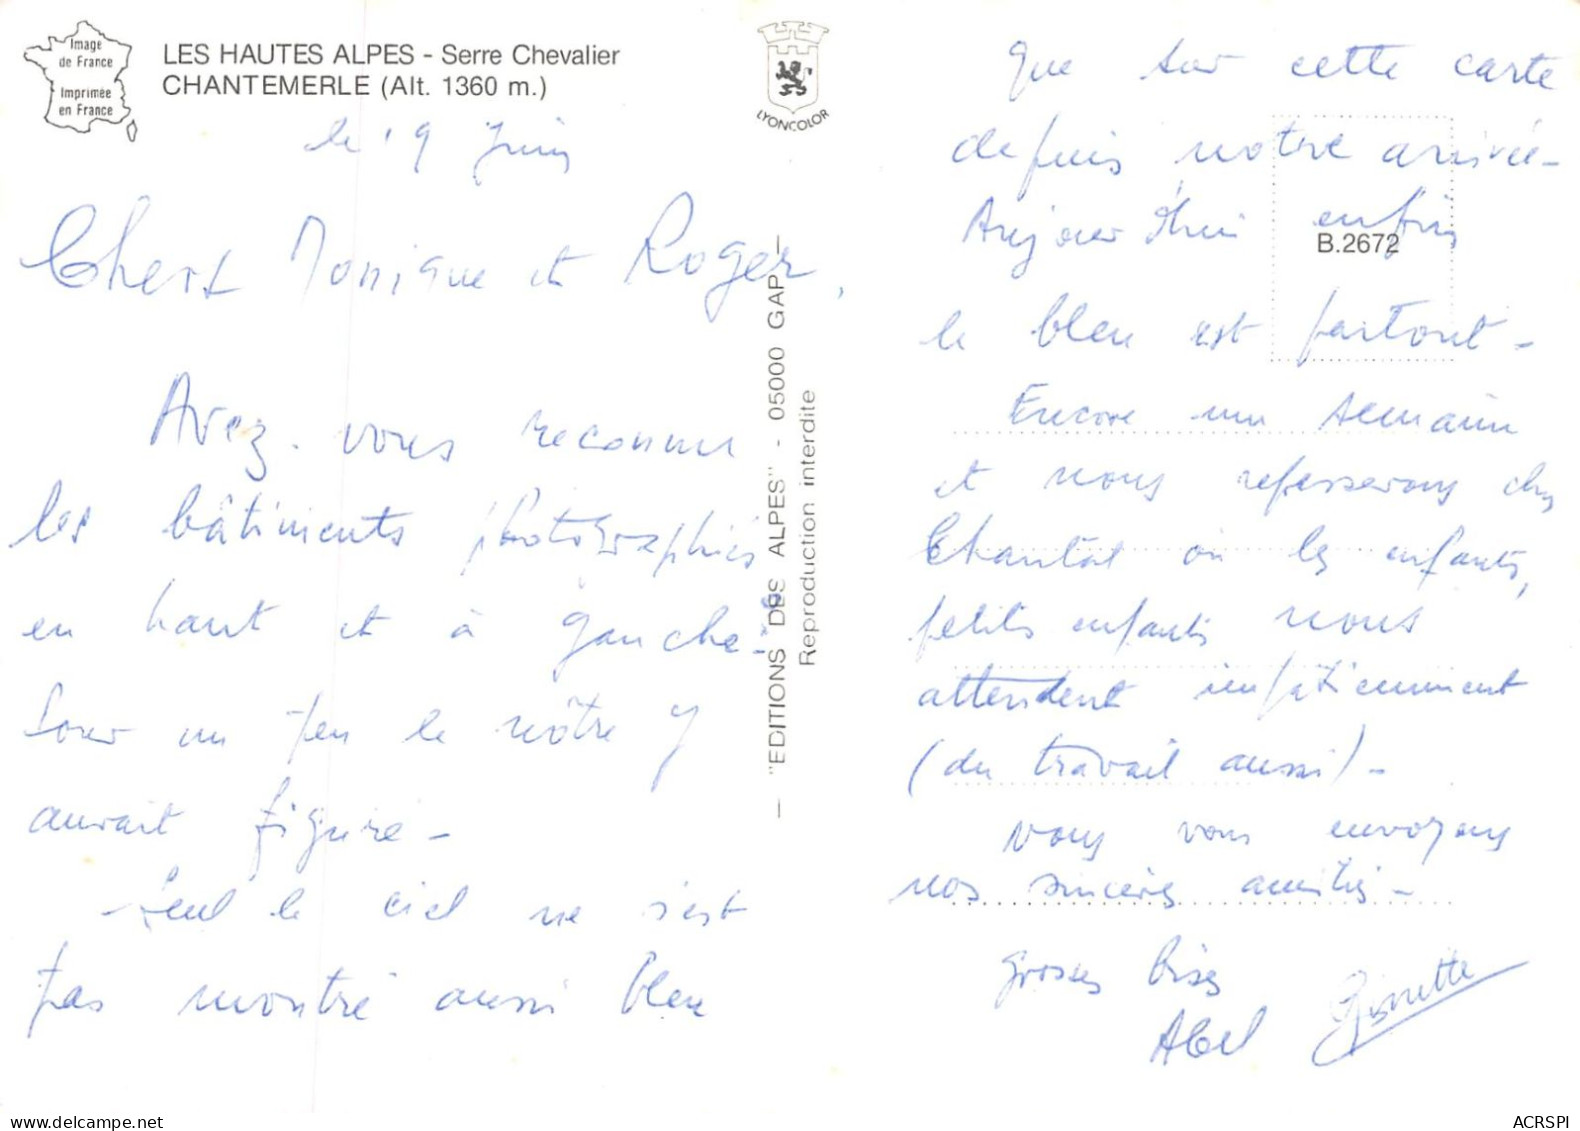 Image
de France
Imprimée
en France
LES HAUTES ALPES - Serre Chevalier
CHANTEMERLE (Alt. 1360 m.)
LYONCOLOR
le 19 Juin
Chers Monique et Roger,
Avez-vous reconnu
les bâtiments photographiés
en haut et à gauche -
Pour un peu le nôtre y
aurait figuré -
Seul le ciel ne s'est
pas montré aussi bleu
— "EDITIONS DES ALPES" - 05000 GAP —
Reproduction interdite
que sur cette carte
depuis notre arrivée -
Aujourd'hui enfin
B.2672
le bleu est partout -
Encore une semaine
et nous repasserons chez
Chantal où les enfants,
petits enfants nous
attendent impatiemment
(du travail aussi) -
Nous vous envoyons
nos sincères amitiés -
Grosses bises
Abel Ginette
ACRSPI